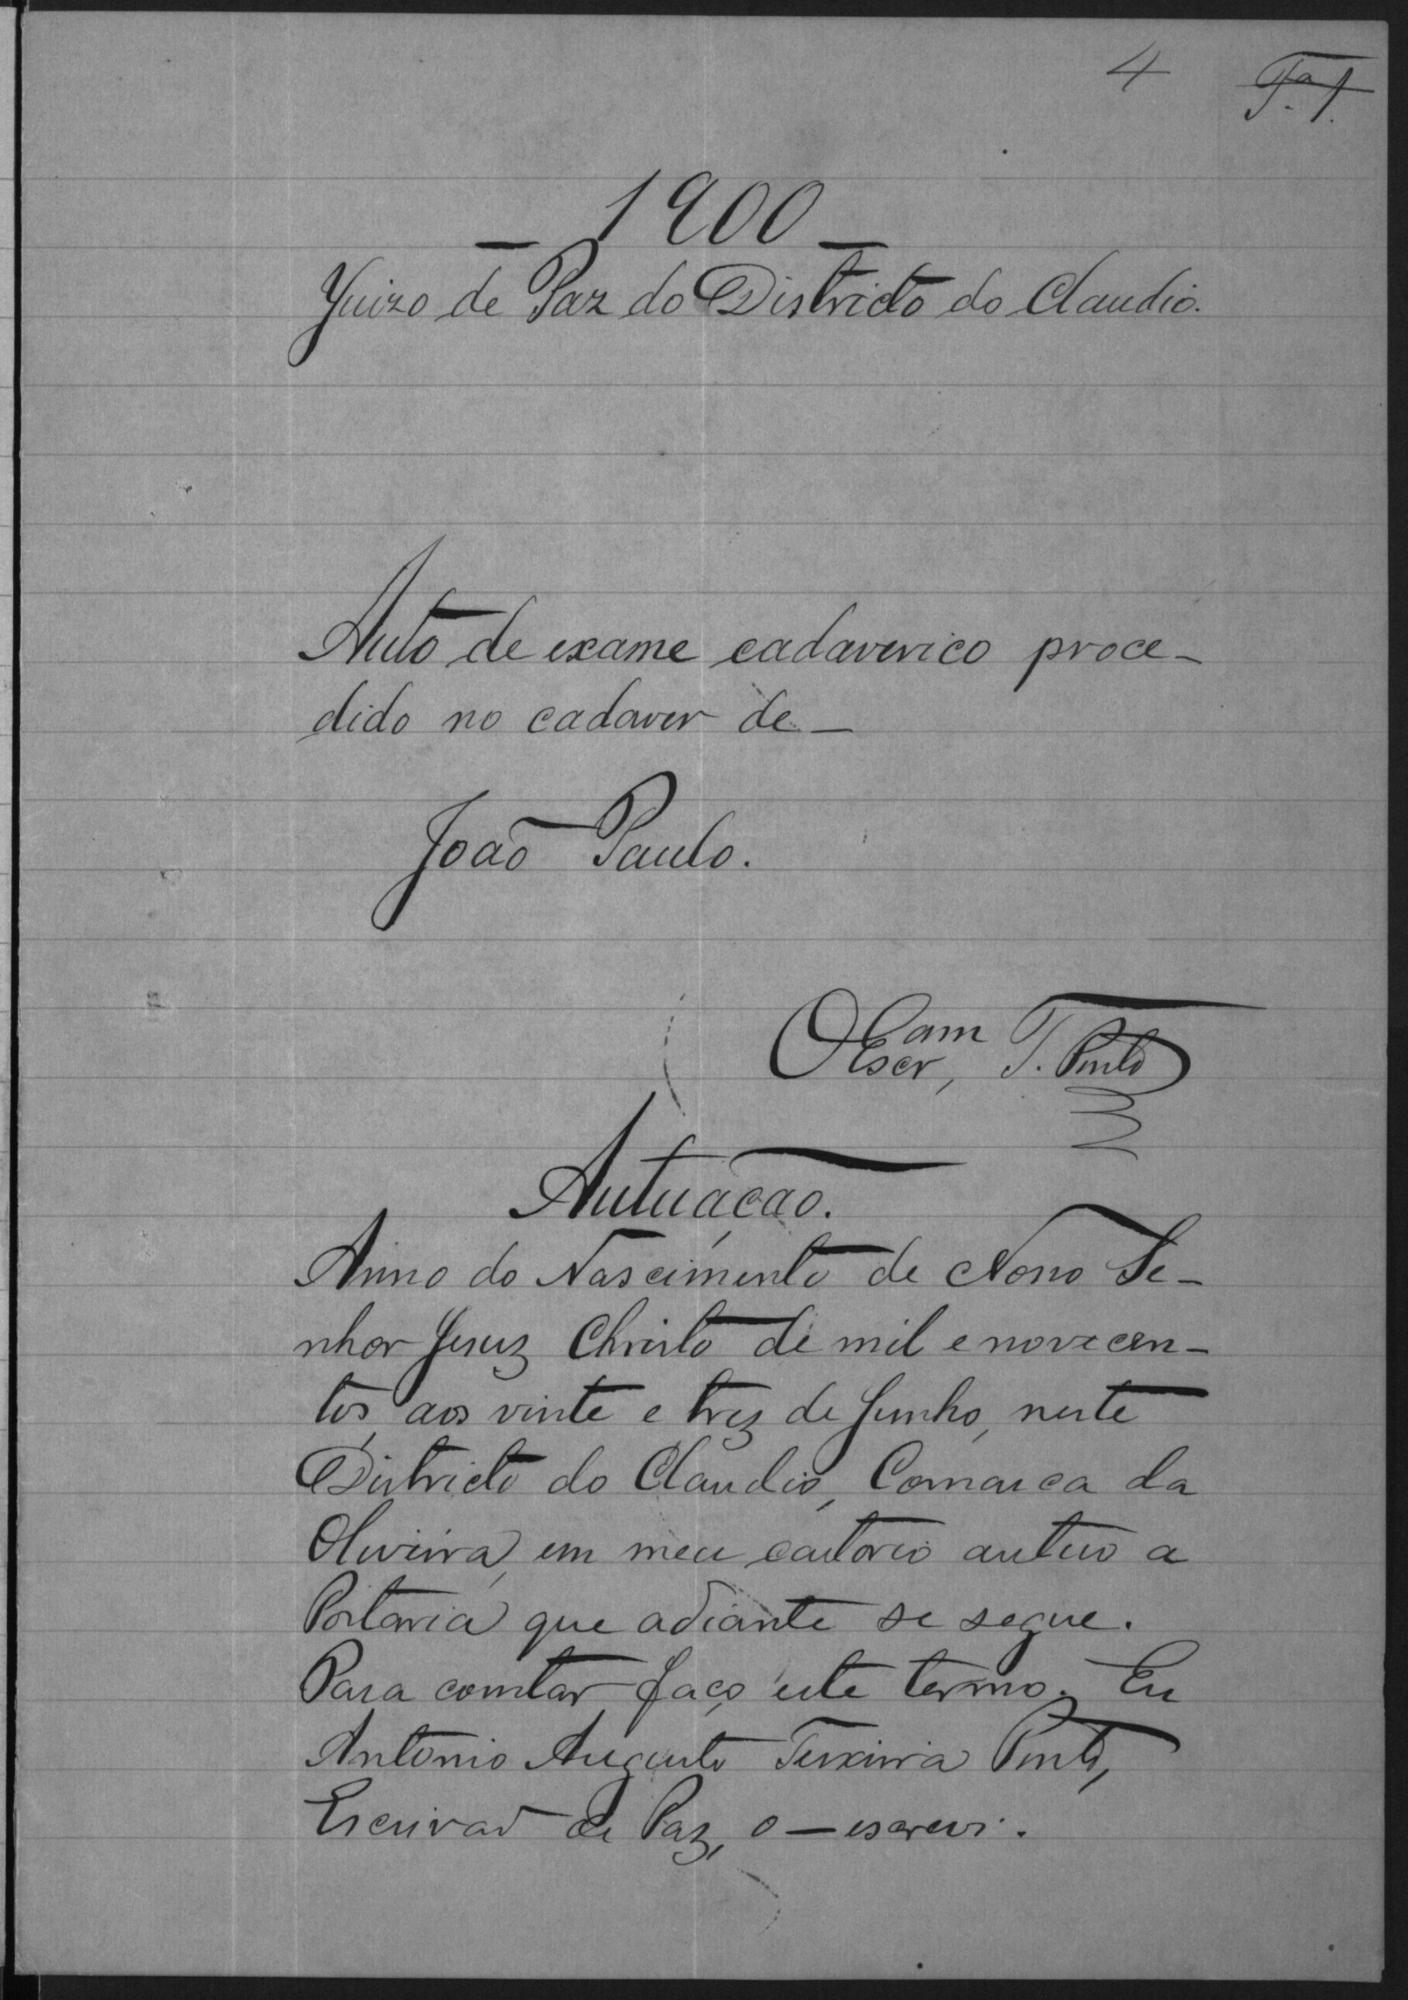 4
1900
Juizo de Paz do Districto do Claudio.
Auto de exame cadaverico proce-
dido no cadaver de
João Paulo.
O Escr, T. Pinto
Autuação.
Anno do Nascimento de Nosso Se-
nhor Jesuz Christo de mil e novecen-
tos, aos vinte e trez de Junho, neste
Districto do Claudio, Comarca da
Oliveira, em meu cartorio autuo a
Portaria que adiante se segue.
Para constar faço este termo. Eu
Antonio Augusto Teixeira Pinto,
Escrivaõ de Paz, o-escrevi.